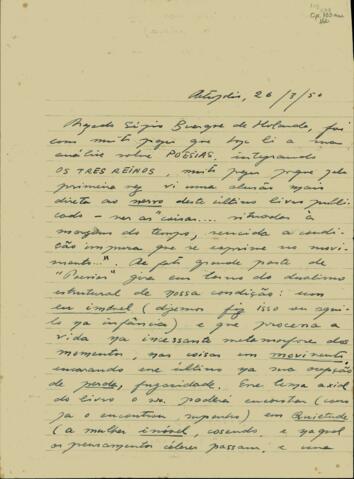 Petrópolis, 26/3/50
Prezado Sérgio Buarque de Holanda, foi
com muito prazer que hoje li a sua
análise sobre POESIAS, integrando
OS TRES REINOS, muito prazer porque pela
primeira vez vi uma alusão mais
direta ao nervo deste último livro publi-
cado - ver as "coisas.... situadas à
margem do tempo, vencida a condi-
ção impura que se exprime no movi-
mento...". De fato grande parte de
gira em torno do dualismo
estrutural de nossa condição: um
eu imóvel (digamos fiz isso ou aqui-
lo na infância) e que procura a
vida na incessante metamorfose dos
momentos, nas coisas em movimento,
encarando este último na sua acepção
de perda, fugacidade. Esse tema axial
do livro o sr. poderá encontrar (como
já o encontrou, suponho) em Quietude
(a mulher imóvel, cosendo, e na qual
os pensamentos céleres passam, e uma